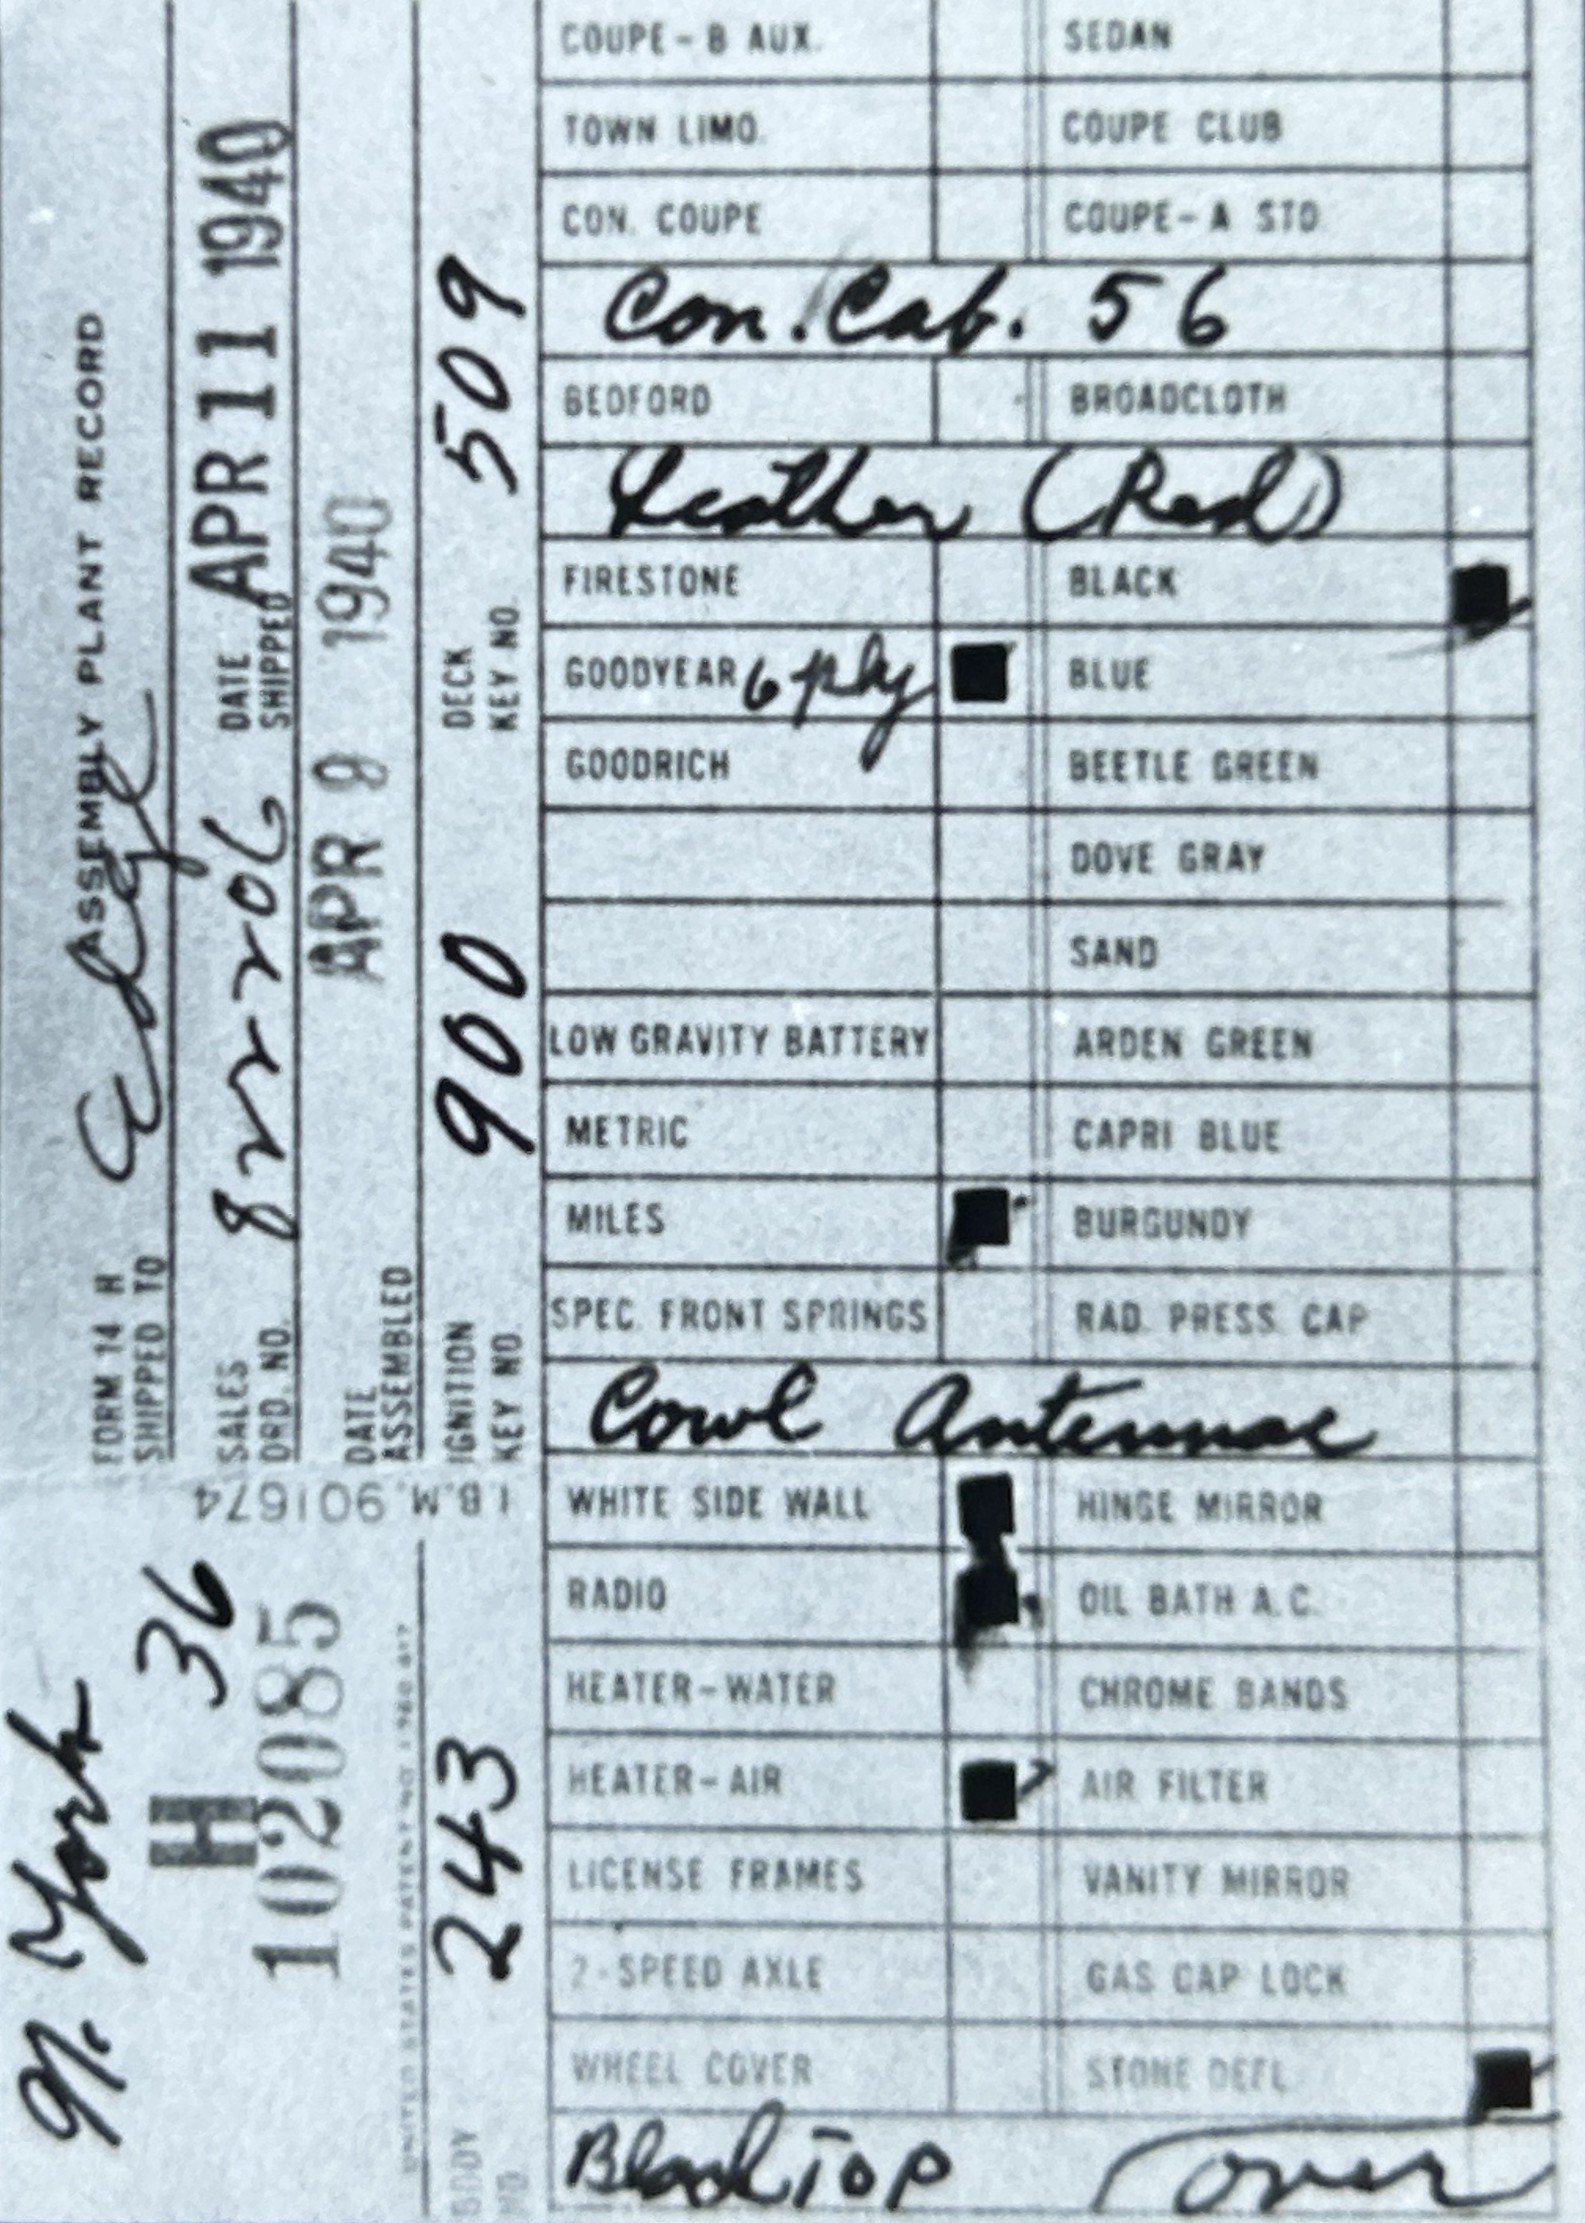 N. York
36
H
102085
FORM 14 H ASSEMBLY PLANT RECORD
SHIPPED TO
SALES ORD. NO.
DATE SHIPPED APR 11 1940
DATE ASSEMBLED APR 9 1940
I.B.M. 901674
BODY NO. 243
IGNITION KEY NO. 900
DECK KEY NO. 509
COUPE - B AUX. SEDAN
TOWN LIMO. COUPE CLUB
CON. COUPE COUPE - A STD.
Con. Cab. 56
BEDFORD BROADCLOTH
Leather (Red)
FIRESTONE BLACK
GOODYEAR 6 ply BLUE
GOODRICH BEETLE GREEN
DOVE GRAY
SAND
LOW GRAVITY BATTERY ARDEN GREEN
METRIC CAPRI BLUE
MILES BURGUNDY
SPEC. FRONT SPRINGS RAD. PRESS. CAP
Cowl Antennae
WHITE SIDE WALL HINGE MIRROR
RADIO OIL BATH A.C.
HEATER - WATER CHROME BANDS
HEATER - AIR AIR FILTER
LICENSE FRAMES VANITY MIRROR
2 - SPEED AXLE GAS CAP LOCK
WHEEL COVER STONE DEFL.
Black Top over